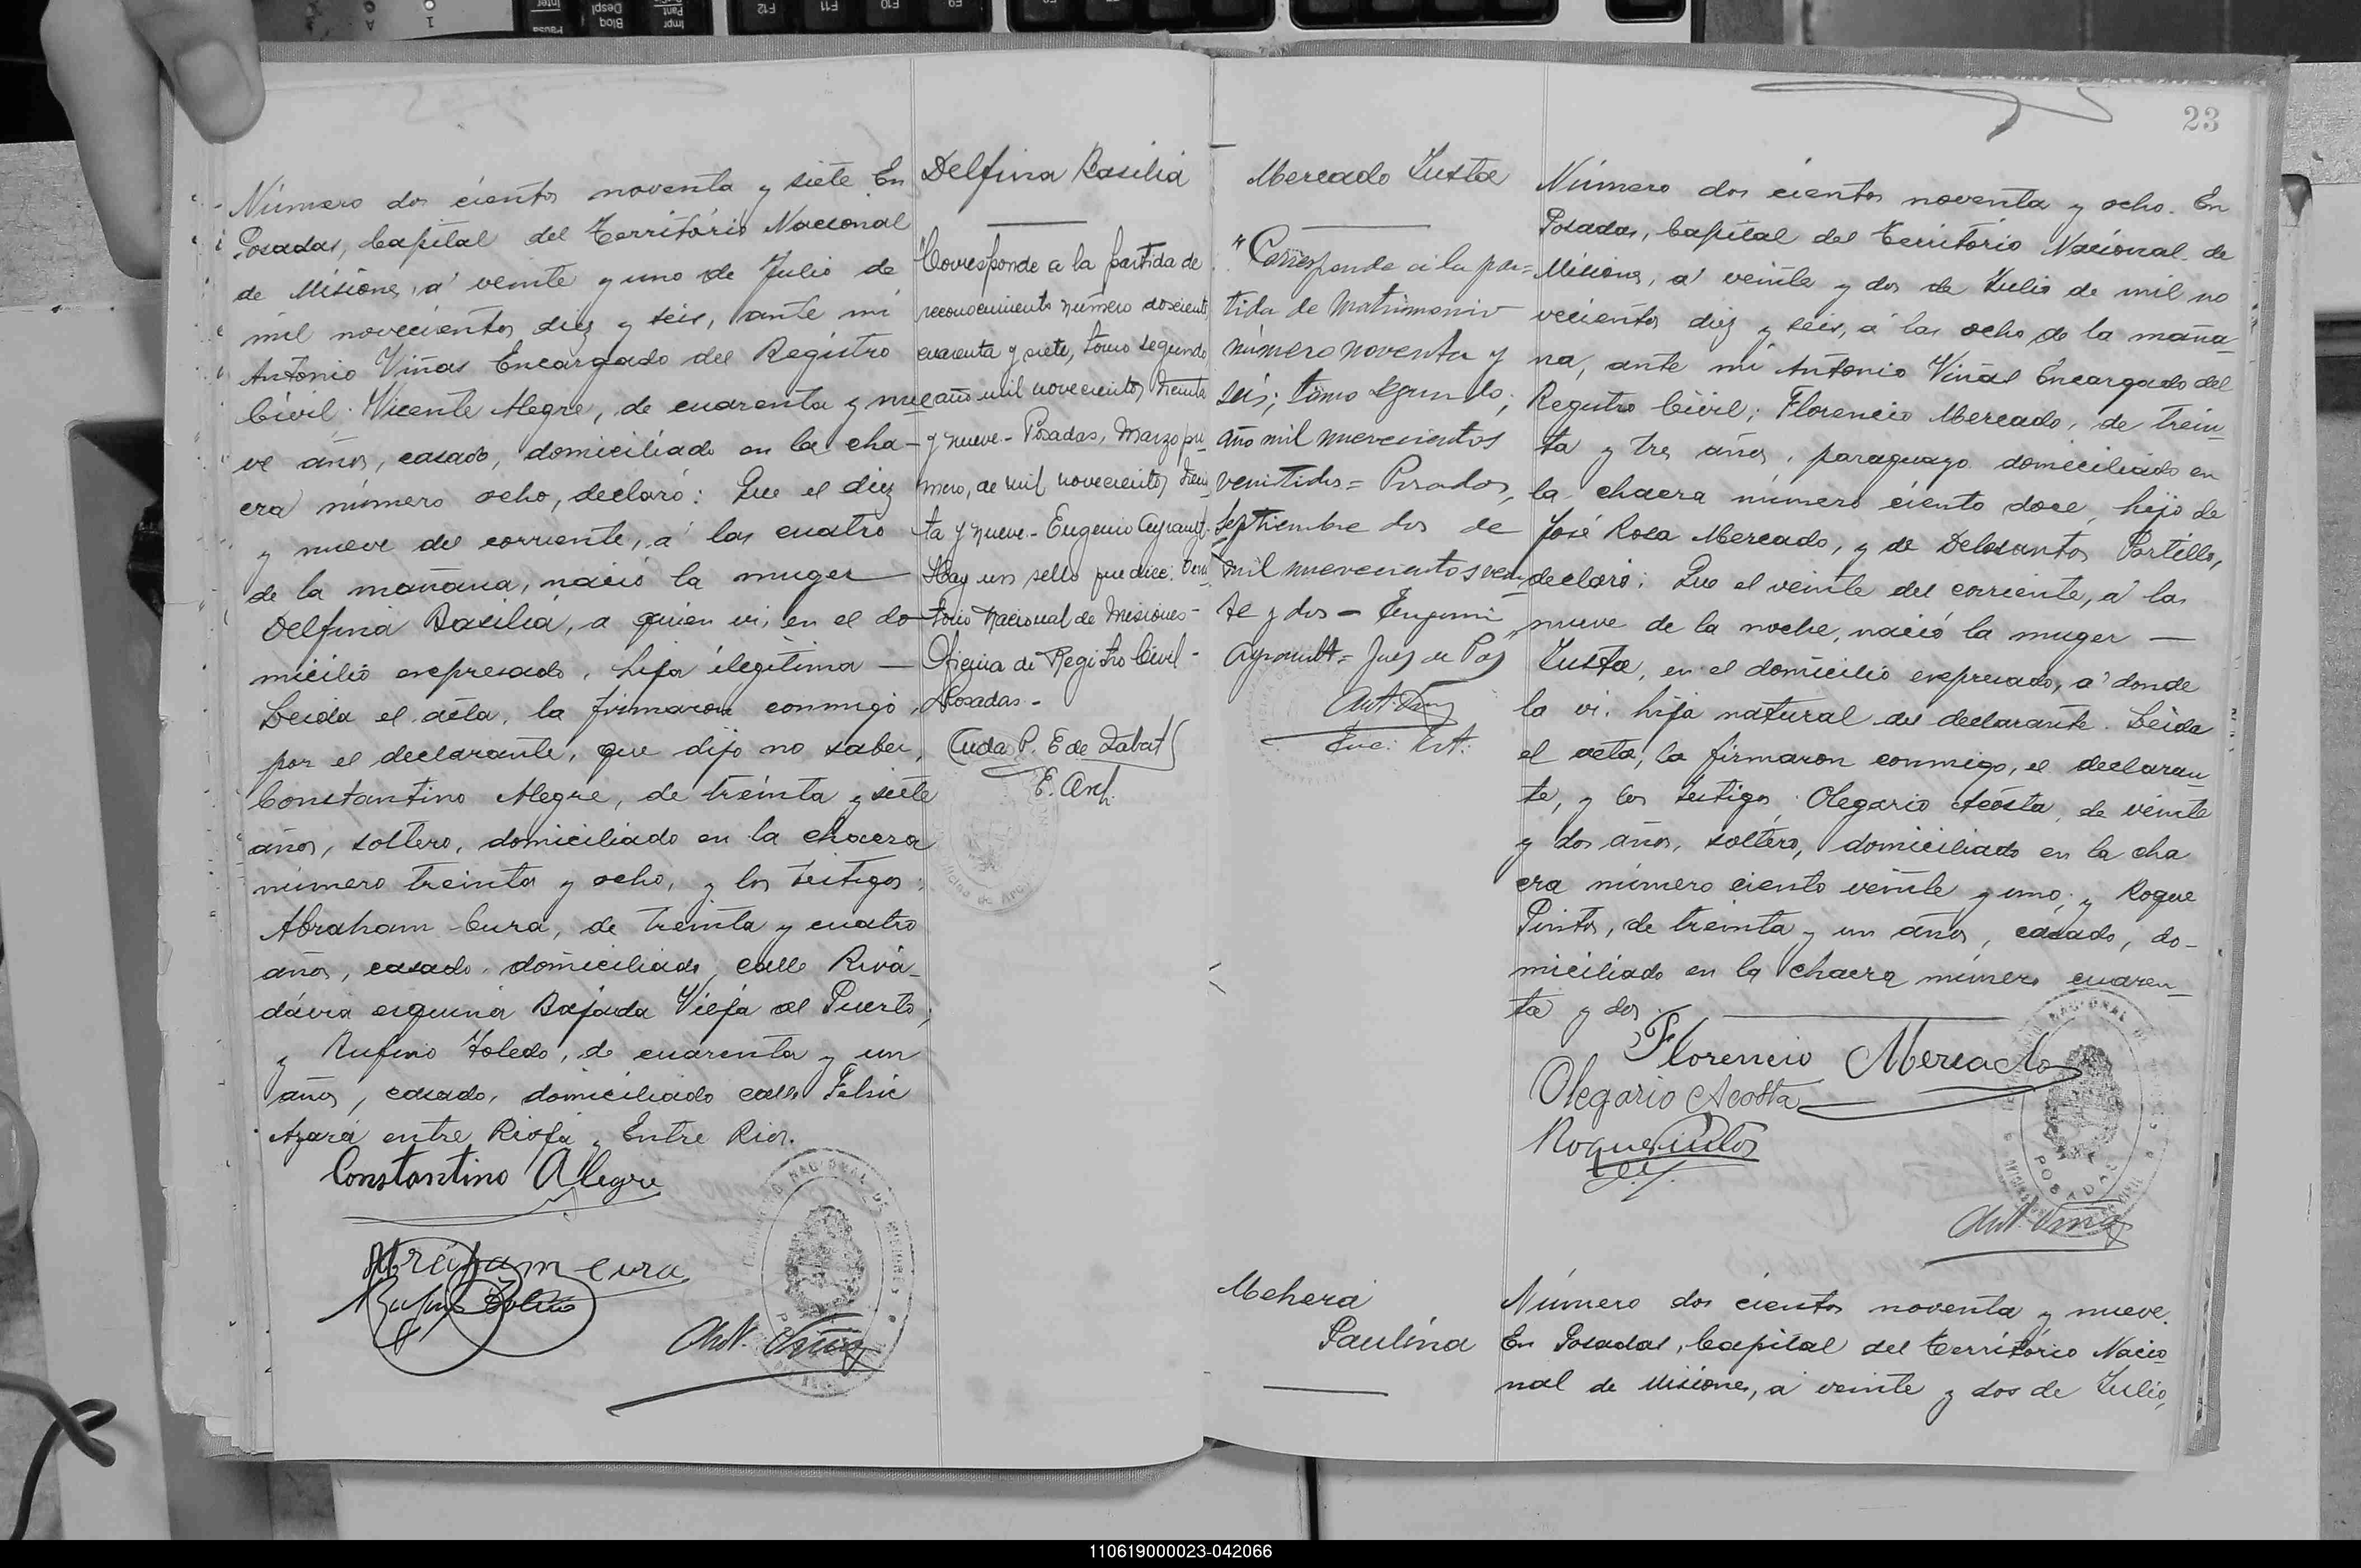 23
Número dos cientos noventa y siete. En
Posadas, Capital del Territorio Nacional
de Misiones, a' veinte y uno de Julio de
mil novecientos diez y seis, ante mi
Antonio Viñas Encargado del Registro
Civil. Vicente Alegre, de cuarenta y nue
ve años, casado, domiciliado en la cha-
cra número ocho, declaró: Que el diez
y nueve del corriente, a' las cuatro
de la mañana, nació la muger —
Delfina Basilia, a quien vi, en el do-
micilio expresado, hija ilegítima —
Leida el acta, la firmaron conmigo,
por el declarante, que dijo no saber,
Constantino Alegre, de treinta y siete
años, soltero, domiciliado en la chacra
número treinta y ocho, y los testigos:
Abraham Cura, de treinta y cuatro
años, casado, domiciliado, calle Riva-
davia esquina Bajada Vieja al Puerto;
y Rufino Toledo, de cuarenta y un
años, casado, domiciliado calle Felix
Azara entre Rioja y Entre Rios.
Constantino Alegre
Abraham cura
Ant. Viñas
Delfina Basilia
"Corresponde a la partida de
reconocimiento número doscientos
cuarenta y siete, tomo segundo
año mil novecientos treinta
y nueve - Posadas, Marzo pri
mero, de mil novecientos trein
ta y nueve - Eugenio Ayrault.
Hay un sello que dice: Terri
torio Nacional de Misiones -
Oficina de Registro Civil -
Posadas -
P. E de Labat
E. Arch.
Mercado Justa
"Corresponde a la par=
tida de matrimonio
número noventa y
seis; tomo segundo;
año mil nuevecientos
veintidos = Posadas,
Septiembre dos de
mil nuevecientos vein
te y dos = Eugenio
Ayrault = Juez de Paz"
Ant. Viñas
Número dos cientos noventa y ocho. En
Posadas, Capital del Territorio Nacional de
Misiones, a' veinte y dos de Julio de mil no
vecientos diez y seis, a' las ocho de la maña-
na, ante mi Antonio Viñas Encargado del
Registro Civil; Florencio Mercado, de trein-
ta y tres años, paraguayo domiciliado en
la chacra número ciento doce, hijo de
José Rosa Mercado, y de Delosantos Portillo,
declaró: Que el veinte del corriente, a' las
nueve de la noche, nació la muger —
Justa, en el domicilio expresado, a' donde
la vi. hija natural del declarante. Leida
el acta, la firmaron conmigo, el declaran
te, y los testigos, Olegario Acosta, de veinte
y dos años, soltero, domiciliado en la cha
cra número ciento veinte y uno; y Roque
Pintos, de treinta y un años, casado, do-
miciliado en la chacra número cuaren-
ta y dos.
Florencio Mercado
Olegario Acosta
Roque Pintos
POSADAS
Ant. Viñas
Mehera
Paulina
Número dos cientos noventa y nueve.
En Posadas, Capital del Territorio Nacio
nal de Misiones, a' veinte y dos de Julio,
110619000023-042066